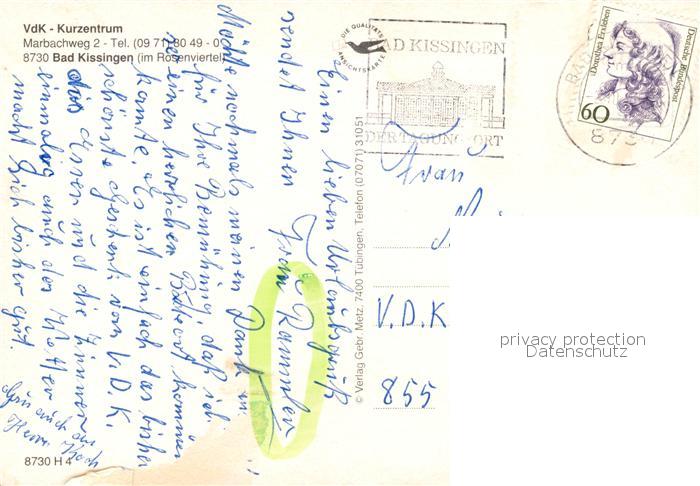 VdK - Kurzentrum
Marbachweg 2 - Tel. (09 71) 80 49 - 0
8730 Bad Kissingen (im Rosenviertel)
Einen lieben Urlaubsgruß
sendet Ihnen Frau Rammler
Möchte nochmals meinen Dank
für Ihre Bemühung, daß ich
so einen herrlichen Badeort
konnte, es ist einfach das bisher
schönste Geschenk vom V.D.K.
das Essen und die Zimmer
einmalig auch das Wetter
macht sich bisher gut.
Gruß auch an
Herrn Koch
8730 H 4
© Verlag Gebr. Metz, 7400 Tübingen, Telefon (07071) 31051
DIE QUALITÄTS
ANSICHTSKARTE
BAD KISSINGEN
DER TAGUNGSORT
Dorothea Erxleben
Deutsche Bundespost
60
873
Frau
V.D.K
855
privacy protection
Datenschutz